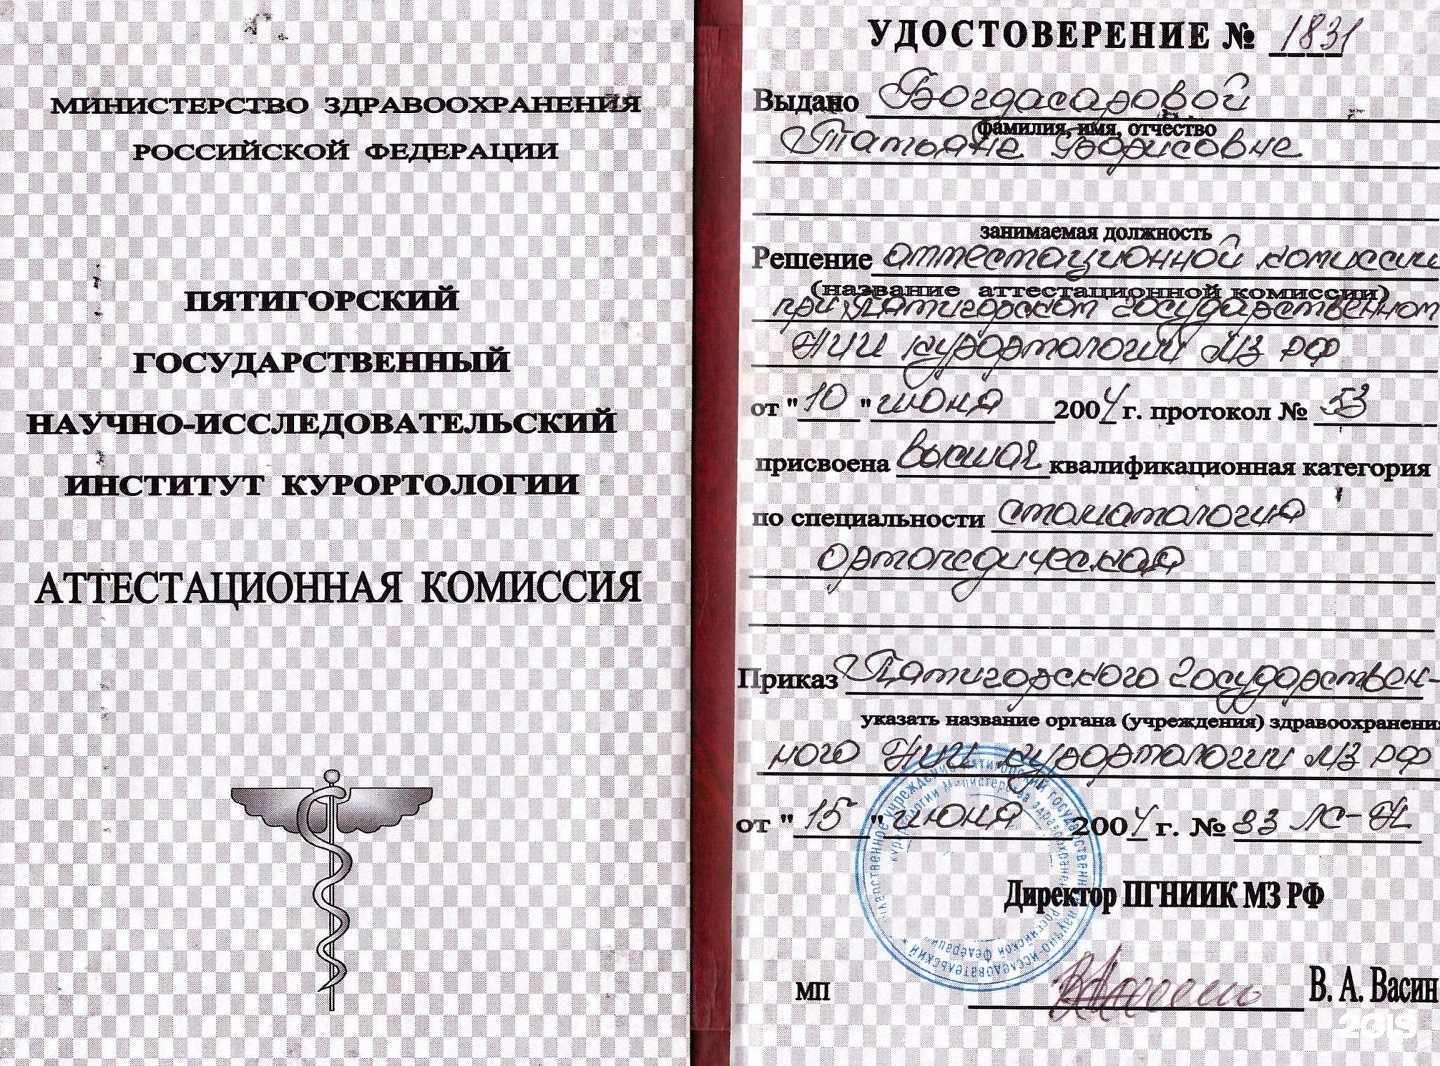 МИНИСТЕРСТВО ЗДРАВООХРАНЕНИЯ
РОССИЙСКОЙ ФЕДЕРАЦИИ
ПЯТИГОРСКИЙ
ГОСУДАРСТВЕННЫЙ
НАУЧНО-ИССЛЕДОВАТЕЛЬСКИЙ
ИНСТИТУТ КУРОРТОЛОГИИ
АТТЕСТАЦИОННАЯ КОМИССИЯ
УДОСТОВЕРЕНИЕ № 1831
Выдано Богдасаровой
фамилия, имя, отчество
Татьяне Борисовне
занимаемая должность
Решение аттестационной комиссии
(название аттестационной комиссии)
при Пятигорском государственном
НИИ курортологии МЗ РФ
от "10" июня 2004 г. протокол № 53
присвоена высшая квалификационная категория
по специальности стоматология
ортопедическая
Приказ Пятигорского государствен-
указать название органа (учреждения) здравоохранения
ного НИИ курортологии МЗ РФ
от "15" июня 2004 г. № 33 ЛС-Н
Директор ПГНИИК МЗ РФ
МП
В. А. Васин
2019